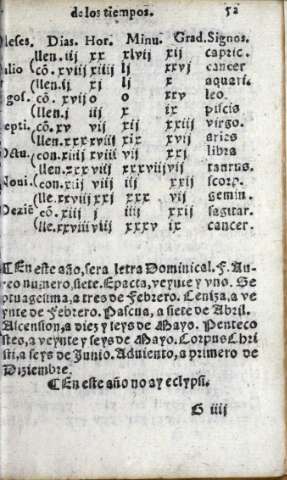 de los tiempos. 52
Meses. Dias. Hor. Minu. Grad. Signos.
(llen. iij xx xlvij xij capric.
Julio cõ. xviij xiiij lj xxvj cancer
(llen. ij xj lj x aquari.
Agos. cõ. xvij o o xxv leo.
(llen. j ij x ix piscis
Septi. cõ. xv vij xij xxiij virgo.
(llen. xxx xviij ix xvij aries
Octu. con. xiiij xviij vij xxj libra
(llen. xxx viij xxxviij vij taurus.
Noui. (con. xiij viij iij xxj scorp.
(lle. xxvij xxj xxx vj gemin.
Deziẽ cõ. xiij j iiij xxij sagitar.
(lle. xxviij viij xxxv ix cancer.
¶ En este año, sera letra Dominical. F. Au-
reo numero, siete. Epacta, veynte y vno. Se
ptuagesima, a tres de Febrero. Ceniza, a ve
ynte de Febrero. Pascua, a siete de Abril.
Ascension, a diez y seys de Mayo. Penteco
stes, a veynte y seys de Mayo. Corpus Chri
sti, a seys de Junio. Aduiento, a primero de
Diziembre.
¶ En este año no ay eclypsi.
G iiij